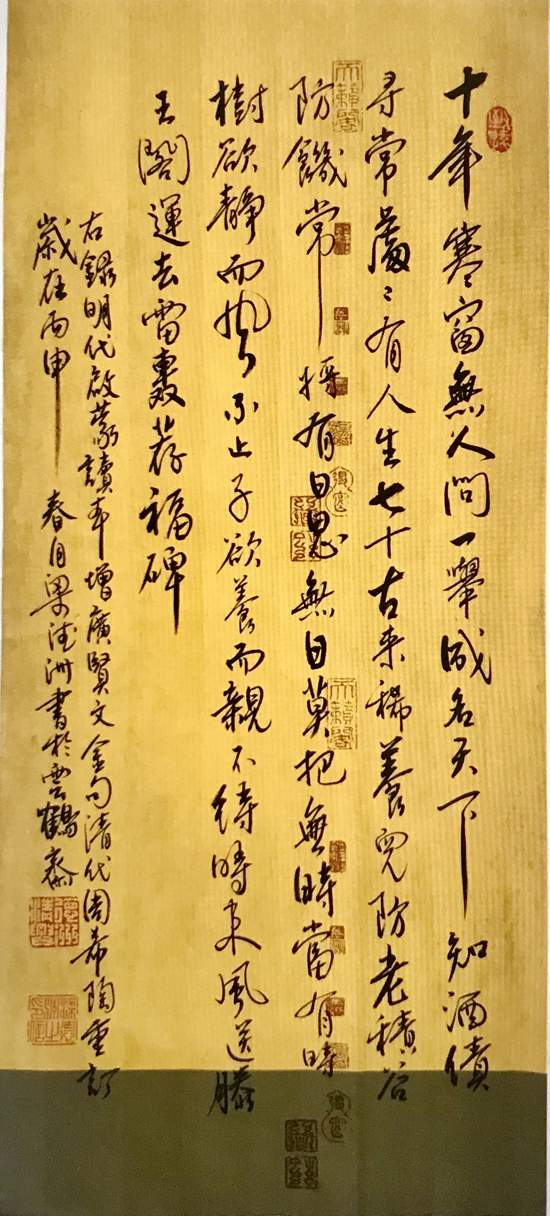 十年寒窗無人問一舉成名天下知酒債
尋常處〻有人生七十古來稀養兒防老積谷
防饑常將有日思無日莫把無時當有時
樹欲靜而風不止子欲養而親不待時來風送滕
王閣運去雷轟荐福碑
右錄明代啟蒙讀本增廣賢文金句清代周希陶重訂
歲在丙申春月梁德洲書於雲鶴齋
天籟閣
天籟閣